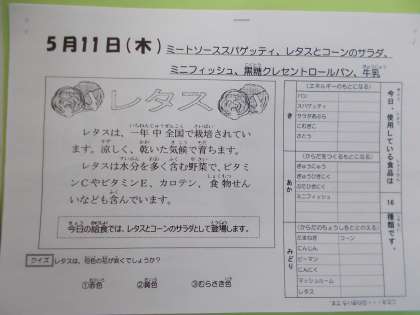 5月11日(木) ミートソーススパゲッティ、レタスとコーンのサラダ、
ミニフィッシュ、黒糖クレセントロールパン、牛乳
レタス
レタスは、一年中全国で栽培されてい
ます。涼しく、乾いた気候で育ちます。
レタスは水分を多く含む野菜で、ビタミ
ンCやビタミンE、カロテン、食物せん
いなども含んでいます。
今日の給食では、レタスとコーンのサラダとして登場します。
クイズ レタスは、何色の花が咲くでしょうか?
①赤色 ②黄色 ③むらさき色
今日、使用している食品は 16 種類です。
き
(エネルギーのもとになる)
パン
スパゲッティ
サラダあぶら
こむぎこ
さとう
あか
(からだをつくるもとになる)
ぎゅうにゅう
ぎゅうひきにく
ぶたひきにく
ミニフィッシュ
みどり
(からだのちょうしをととのえる)
たまねぎ コーン
にんじん
ピーマン
にんにく
マッシュルーム
レタス